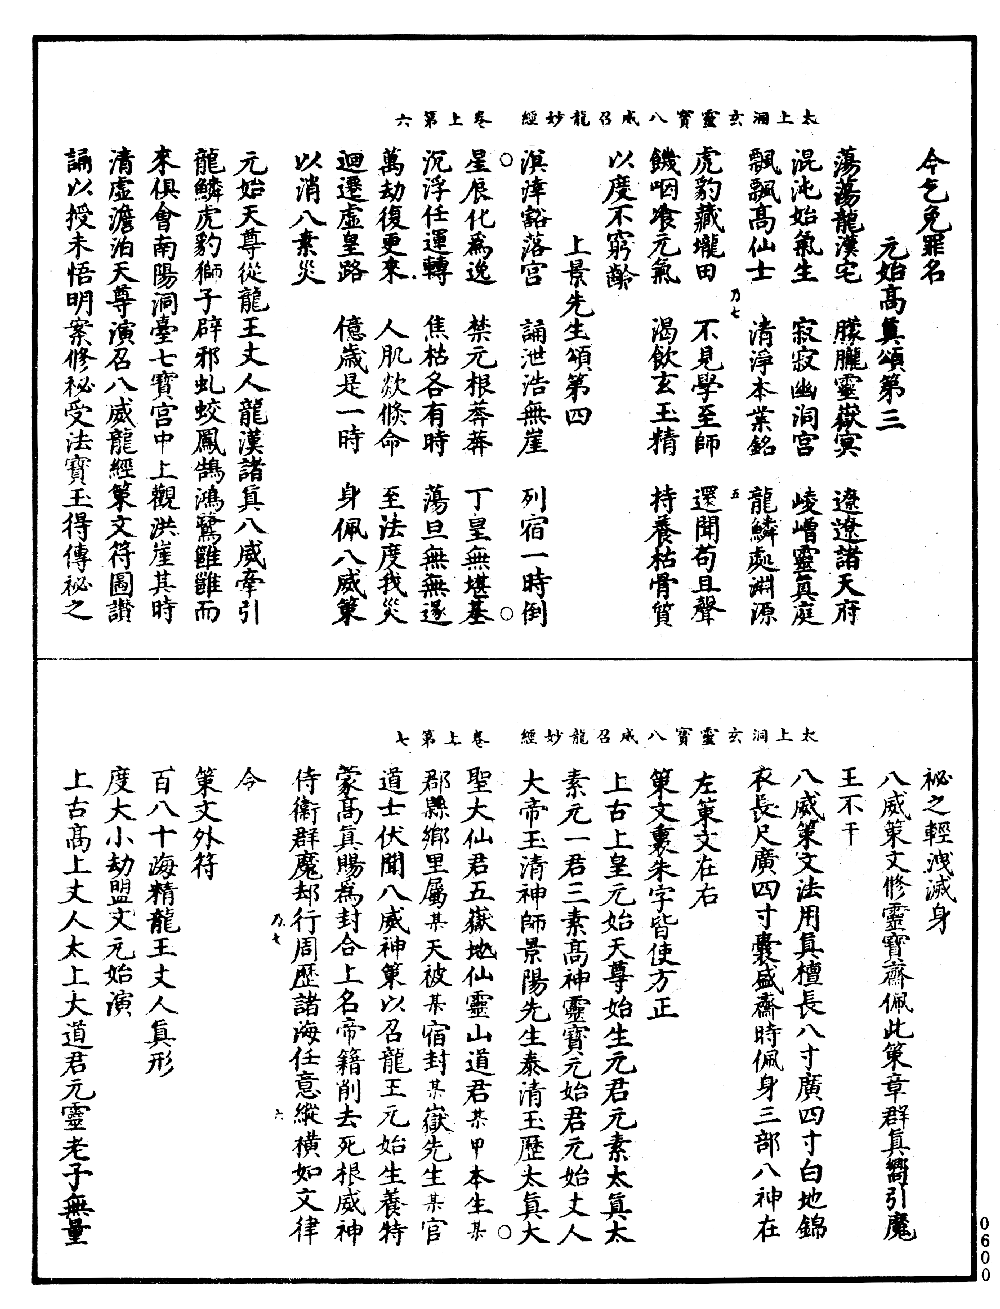 太上洞玄靈寶八威召龍妙經　卷上第六
今乞免罪名
元始高真頌第三
蕩蕩龍漢宅　朦朧靈嶽冥　遼遼諸天府
混沌始氣生　寂寂幽洞宮　崚嶒靈真庭
飄飄高仙士　清淨本業銘　龍鱗處淵源
乃七　五
虎豹藏壠田　不見學至師　還聞苟且聲
饑咽飡元氣　渴飲玄玉精　持養枯骨質
以度不窮齡
上景先生頌第四
溟涬豁落宮　誦泄浩無崖　列宿一時倒
星辰化為逸　禁元根莽莽　丁皇無堪基
沉浮任運轉　焦枯各有時　蕩旦無無遂
萬劫復更來　人肌欻倏命　至法度我災
迴遷虛皇路　億歲是一時　身佩八威策
以消八素災
元始天尊從龍王丈人龍漢諸真八威牽引
龍鱗虎豹獅子辟邪虬蛟鳳鵠鴻鷺雝雝而
來俱會南陽洞臺七寶宮中上觀洪崖其時
清虛澹泊天尊演召八威龍經策文符圖讚
誦以授未悟明案修祕受法寶玉得傳祕之
太上洞玄靈寶八威召龍妙經　卷上第七
祕之輕洩滅身
八威策文修靈寶齋佩此策章群真嚮引魔
王不干
八威策文法用真檀長八寸廣四寸白地錦
衣長尺廣四寸囊盛齋時佩身三部八神在
左策文在右
策文裏朱字皆使方正
上古上皇元始天尊始生元君元素太真太
素元一君三素高神靈寶元始君元始丈人
大帝玉清神師景陽先生泰清玉歷太真大
聖大仙君五嶽地仙靈山道君某甲本生某
郡縣鄉里屬某天被某宿封某嶽先生某官
道士伏聞八威神策以召龍王元始生養特
蒙高真賜為封合上名帝籍削去死根威神
侍衛群魔却行周歷諸海任意縱橫如文律
乃七　六
令
策文外符
百八十海精龍王丈人真形
度大小劫盟文元始演
上古高上丈人太上大道君元靈老子無量
0600